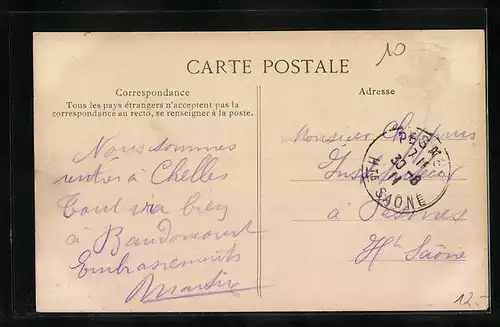 10
CARTE POSTALE
Correspondance
Tous les pays étrangers n'acceptent pas la
correspondance au recto, se renseigner à la poste.
Nous sommes
rentrés à Chelles
Tout va bien
à Baudoncourt
Embrassements
Martin
Adresse
Monsieur
Instituteur
à Pesmes
Hte Saône
PESMES
30
11
HTE SAÔNE
12.-